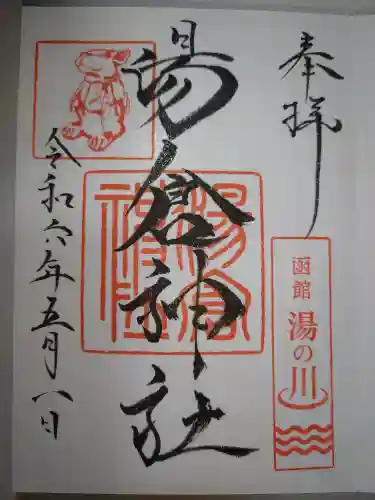 奉拝
函館 湯の川
湯倉神社
湯倉神社
令和六年五月八日